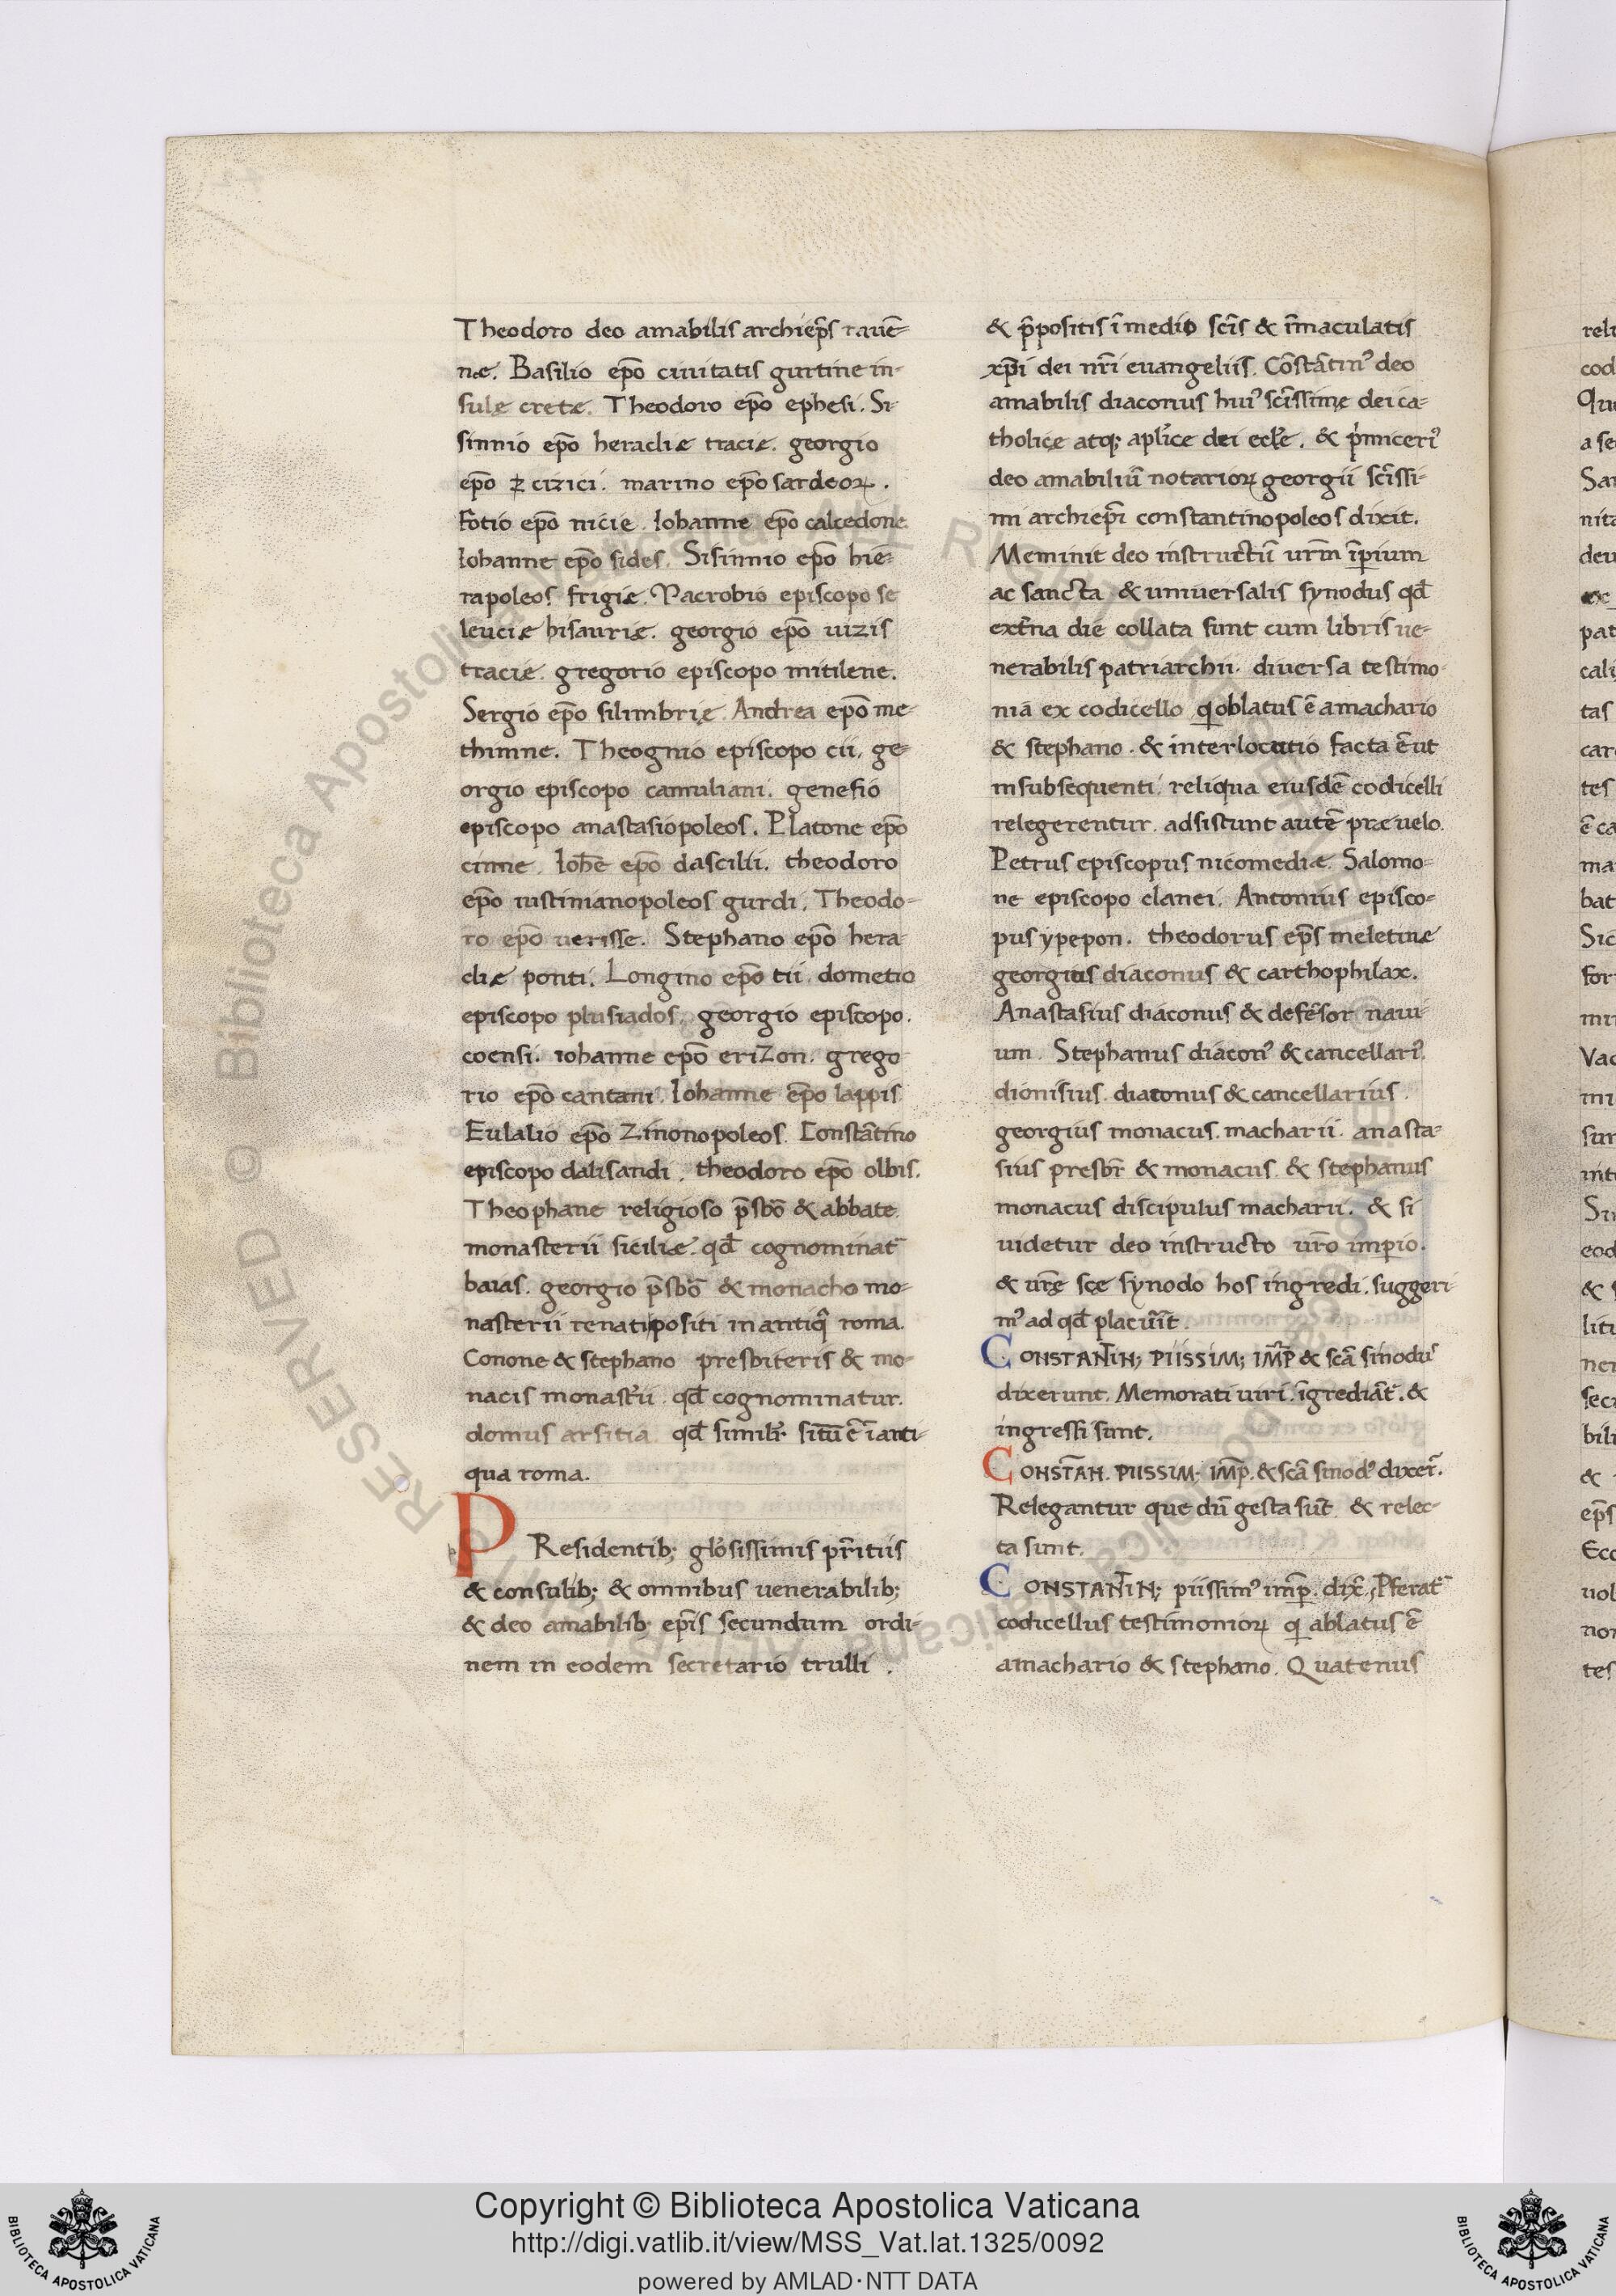 Theodoro deo amabilis archiep̄s rauē-
næ. Basilio ep̄o ciuitatis gurtine in-
sulę cretæ. Theodoro ep̄o ephesi. Si-
sinnio ep̄o heracliæ traciæ. georgio
ep̄o cizici. marino ep̄o sardeoꝝ.
Fotio ep̄o nicie. Iohanne ep̄o calcedone.
Iohanne ep̄o sides. Sisinnio ep̄o hie-
rapoleos frigiæ. Macrobio episcopo se
leuciæ hisauriæ. georgio ep̄o uizis
traciæ. gregorio episcopo mitilene.
Sergio ep̄o silimbrię. Andrea ep̄o me-
thimne. Theognio episcopo cii. ge-
orgio episcopo camuliani. genesio
episcopo anastasiopoleos. Platone ep̄o
cinne. Ioh̄e ep̄o dascilii. theodoro
ep̄o iustinianopoleos gurdi. Theodo-
ro ep̄o uerisse. Stephano ep̄o hera-
cliæ ponti. Longino ep̄o tii. dometio
episcopo plusiados. georgio episcopo.
coensi. iohanne ep̄o erizon. grego
rio ep̄o cantani. Iohanne ep̄o lappis.
Eulalio ep̄o zinonopoleos. Constātino
episcopo dalisandi. theodoro ep̄o olbis.
Theophane religioso p̄sb̄o & abbate.
monasterii siciliæ. qđ cognominat᷑
baias. georgio p̄sb̄o & monacho mo-
nasterii renati positi in antiq̄ roma.
Conone & stephano presbiteris & mo-
nacis monast̄ii. qđ cognominatur.
domus arsitia. qđ simil̄r sitū ē ī anti-
qua roma.
PResidentib; gl̄osissimis p̄ritiis
& consulib; & omnibus uenerabilib;
& deo amabilib; ep̄is secundum ordi-
nem in eodem secretario trulli.
& p̄positis ī medio sc̄is & īmaculatis
xp̄i dei nr̄i euangeliis. Cōstātinꝰ deo
amabilis diaconus huiꝰ sc̄issimę dei ca-
tholicę atq; apl̄ice dei eccl̄e. & p̄miceriꝰ
deo amabiliū notarioꝝ georgii sc̄issi-
mi archiep̄i constantinopoleos dixit.
Meminit deo instructū ur̄m īꝑium
ac sancta & uniuersalis synodus qđ
ext̄na die collata sunt cum libris ue-
nerabilis patriarchii. diuersa testimo-
nia ex codicello q̄ oblatus ē a machario
& stephano. & interlocutio facta ē ut
in subsequenti. reliqua eiusdē codicelli
relegerentur. adsistunt autē præ uelo.
Petrus episcopus nicomediæ. Salomo-
ne episcopo clanei. Antonius episco-
pus ypepon. theodorus ep̄s meletinæ
georgius diaconus & carthophilax.
Anastasius diaconus & defēsor naui-
um. Stephanus diaconꝰ & cancellariꝰ.
dionisius. diaconus & cancellarius.
georgius monacus. macharii. anasta-
sius presbr̄ & monacus. & stephanus
monacus discipulus macharii. & si
uidetur deo instructo ur̄o imꝑio.
& ur̄ę scę synodo hos ingredi. suggeri
mꝰ ad qđ placuīt.
CONSTANTIN; PIISSIM; IMP̄ & scā sinodus
dixerunt. Memorati uiri. īgrediāt᷑. &
ingressi sunt.
CONSTAN̄. PIISSIM; IMP̄. & scā sinodꝰ dixer̄.
Relegantur que dū gesta sūt. & relec-
ta sunt.
CONSTANTIN; piissimꝰ imp̄. dix̄. Pferat᷑
codicellus testimonioꝝ q̄ ablatus ē
a machario & stephano. Quatenus
Copyright © Biblioteca Apostolica Vaticana
http://digi.vatlib.it/view/MSS_Vat.lat.1325/0092
powered by AMLAD·NTT DATA